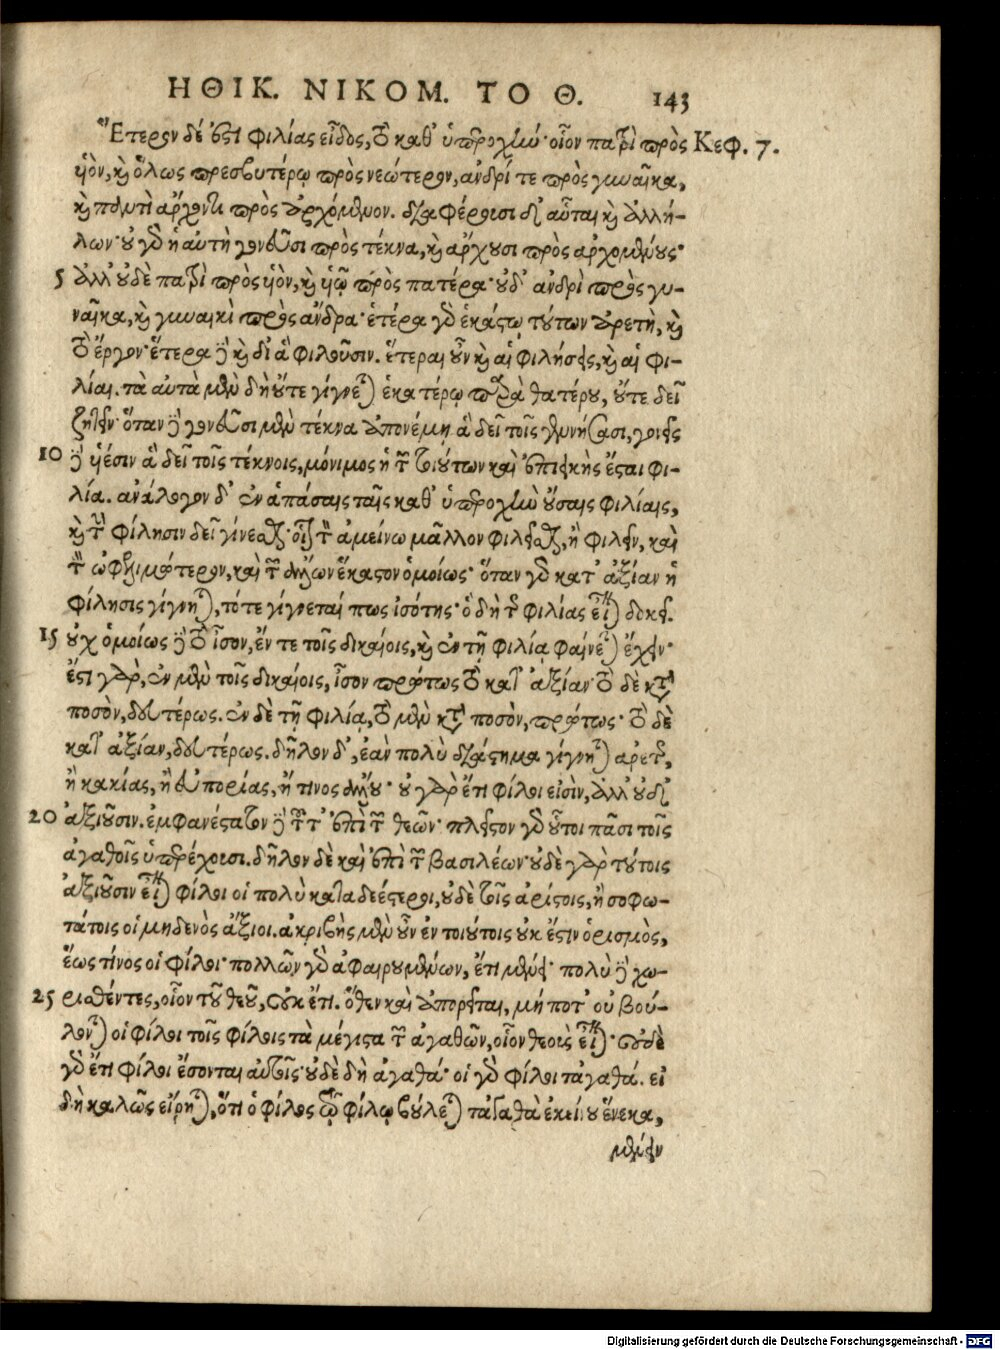 ΗΘΙΚ. ΝΙΚΟΜ. ΤΟ Θ. 143
Ἕτερον δέ ἐστι φιλίας εἶδος, τὸ καθ' ὑπεροχήν· οἷον πατρὶ πρὸς Κεφ. 7.
υἱὸν, καὶ ὅλως πρεσβυτέρῳ πρὸς νεώτερον, ἀνδρί τε πρὸς γυναῖκα,
καὶ παντὶ ἄρχοντι πρὸς ἀρχόμενον. διαφέρουσι δ' αὗται καὶ ἀλλή-
λων· οὐ γὰρ ἡ αὐτὴ γονεῦσι πρὸς τέκνα, καὶ ἄρχουσι πρὸς ἀρχομένους·
5 ἀλλ' οὐδὲ πατρὶ πρὸς υἱὸν, καὶ υἱῷ πρὸς πατέρα· οὐδ' ἀνδρὶ πρὸς γυ-
ναῖκα, καὶ γυναικὶ πρὸς ἄνδρα· ἑτέρα γὰρ ἑκάστῳ τούτων ἀρετὴ, καὶ
τὸ ἔργον· ἕτερα δὲ καὶ δι' ἃ φιλοῦσιν. ἕτεραι οὖν καὶ αἱ φιλήσεις, καὶ αἱ φι-
λίαι. τὰ αὐτὰ μὲν δὴ οὔτε γίγνεται ἑκατέρῳ παρὰ θατέρου, οὔτε δεῖ
ζητεῖν· ὅταν δὲ γονεῦσι μὲν τέκνα ἀπονέμῃ ἃ δεῖ τοῖς γεννήσασι, γονεῖς
10 δὲ υἱέσιν ἃ δεῖ τοῖς τέκνοις, μόνιμος ἡ τῶν τοιούτων καὶ ἐπιεικὴς ἔσται φι-
λία. ἀνάλογον δ' ἐν ἁπάσαις ταῖς καθ' ὑπεροχὴν οὔσαις φιλίαις,
καὶ τὴν φίλησιν δεῖ γίνεσθαι· οἷον τὸν ἀμείνω μᾶλλον φιλεῖσθαι, ἢ φιλεῖν, καὶ
τὸν ὠφελιμώτερον, καὶ τῶν ἄλλων ἕκαστον ὁμοίως· ὅταν γὰρ κατ' ἀξίαν ἡ
φίλησις γίγνηται, τότε γίγνεταί πως ἰσότης· ὃ δὴ τῆς φιλίας εἶναι δοκεῖ.
15 οὐχ ὁμοίως δὲ τὸ ἴσον, ἔν τε τοῖς δικαίοις, καὶ ἐν τῇ φιλίᾳ φαίνεται ἔχειν·
ἔστι γὰρ, ἐν μὲν τοῖς δικαίοις, ἴσον πρώτως τὸ κατ' ἀξίαν· τὸ δὲ κατὰ
ποσὸν, δευτέρως. ἐν δὲ τῇ φιλίᾳ, τὸ μὲν κατὰ ποσὸν, πρώτως· τὸ δὲ
κατ' ἀξίαν, δευτέρως. δῆλον δ', ἐὰν πολὺ διάστημα γίγνηται ἀρετῆς,
ἢ κακίας, ἢ εὐπορίας, ἤ τινος ἄλλου· οὐ γὰρ ἔτι φίλοι εἰσὶν, ἀλλ' οὐδ'
20 ἀξιοῦσιν. ἐμφανέστατον δὲ τοῦτ' ἐπὶ τῶν θεῶν· πλεῖστον γὰρ οὗτοι πᾶσι τοῖς
ἀγαθοῖς ὑπερέχουσι. δῆλον δὲ καὶ ἐπὶ τῶν βασιλέων· οὐδὲ γὰρ τούτοις
ἀξιοῦσιν εἶναι φίλοι οἱ πολὺ καταδεέστεροι, οὐδὲ τοῖς ἀρίστοις, ἢ σοφω-
τάτοις οἱ μηδενὸς ἄξιοι. ἀκριβὴς μὲν οὖν ἐν τοιούτοις οὐκ ἔστιν ὁρισμὸς,
ἕως τίνος οἱ φίλοι· πολλῶν γὰρ ἀφαιρουμένων, ἔτι μένει· πολὺ δὲ χω-
25 ρισθέντες, οἷον τοῦ θεοῦ, οὐκ ἔτι. ὅθεν καὶ ἀπορεῖται, μή ποτ' οὐ βού-
λονται οἱ φίλοι τοῖς φίλοις τὰ μέγιστα τῶν ἀγαθῶν, οἷον θεοὺς εἶναι· οὐδὲ
γὰρ ἔτι φίλοι ἔσονται αὐτοῖς· οὐδὲ δὴ ἀγαθά· οἱ γὰρ φίλοι τἀγαθά. εἰ
δὴ καλῶς εἴρηται, ὅτι ὁ φίλος τῷ φίλῳ βούλεται τἀγαθὰ ἐκείνου ἕνεκα,
μένειν
Digitalisierung gefördert durch die Deutsche Forschungsgemeinschaft - DFG